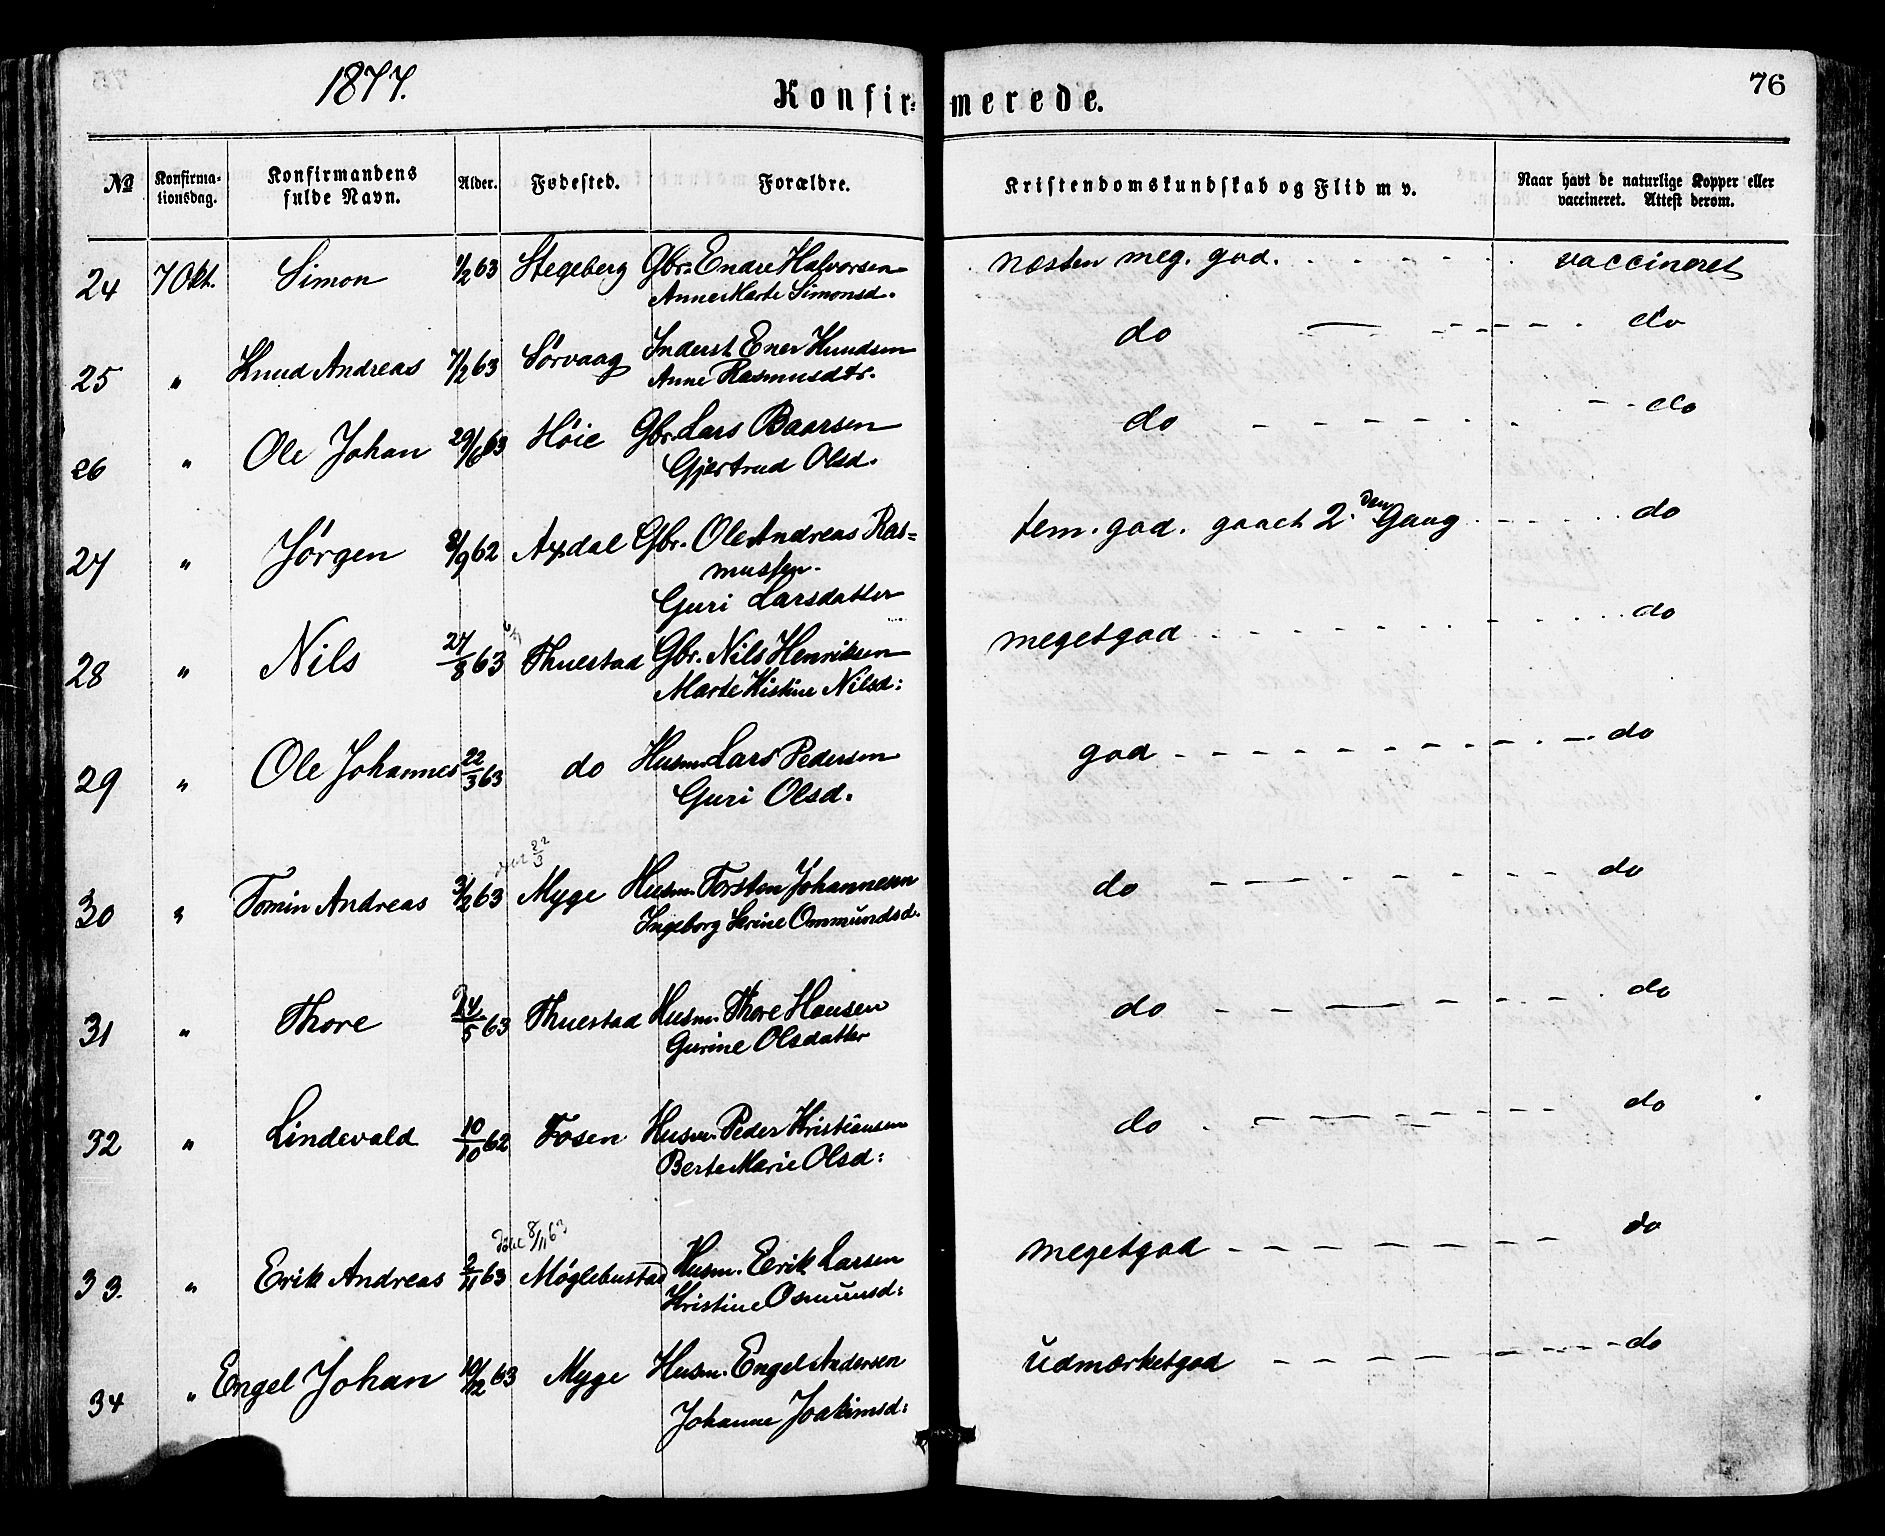 1877.
Konfirmerede.
76
No
Konfirma-
tionsdag.
Konfirmandens
fulde Navn.
Alder.
Fødested.
Forældre.
Kristendomskundskab og Flid m v.
Naar havt de naturlige Kopper eller
vaccineret. Attest derom.
24 7 Okt. Simon 1/2 63 Stegeberg Gbr. Endre Halvorsen næsten meg. god. vaccineret
Anne Marte Simonsd.
25 " Knud Andreas 7/2 63 Sørvaag Inderst Ener Knudsen do do
Anne Rasmusdtr.
26 " Ole Johan 29/6 63 Høie Gbr. Lars Baarsen do do
Gjertrud Olsd.
27 " Jørgen 8/9 62 Axdal Gbr. Ole Andreas Ras- tem. god. gaaet 2den Gang do
mussen.
Guri Larsdatter
28 " Nils 27/8 63 Thuestad Gbr. Nils Henriksen meget god do
Marte Kistine Nilsd:
29 " Ole Johannes 22/3 63 do Husm. Lars Pedersen god do
Guri Olsd.
22/3
30 " Tomin Andreas 3/2 63 Myge Husm. Torsten Johannesen do do
Ingeborg Serine Ommundsd.
31 " Thore 24/5 63 Thuestad Husm. Thore Hansen do do
Gurine Olsdatter
32 " Lindevald 10/10 62 Fosen Husm. Peder Kristiansen do do
Berte Marie Olsd:
Døbt 8/11 63
33. " Erik Andreas 2/11 63 Møglebustad Husm. Erik Larsen meget god do
Kristine Osmunsd:
34 " Engel Johan 10/12 63 Myge Husm. Engel Andersen udmærket god do
Johanne Joakimsd: